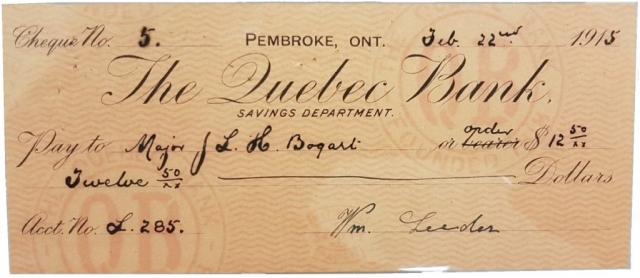 Cheque No. 5. PEMBROKE, ONT. Feb. 22nd 1915
The Quebec Bank.
SAVINGS DEPARTMENT.
Pay to Major L. H. Bogart or order bearer $ 12 50/xx
Twelve 50/xx Dollars
Acct. No. L. 285. Wm. Leeder